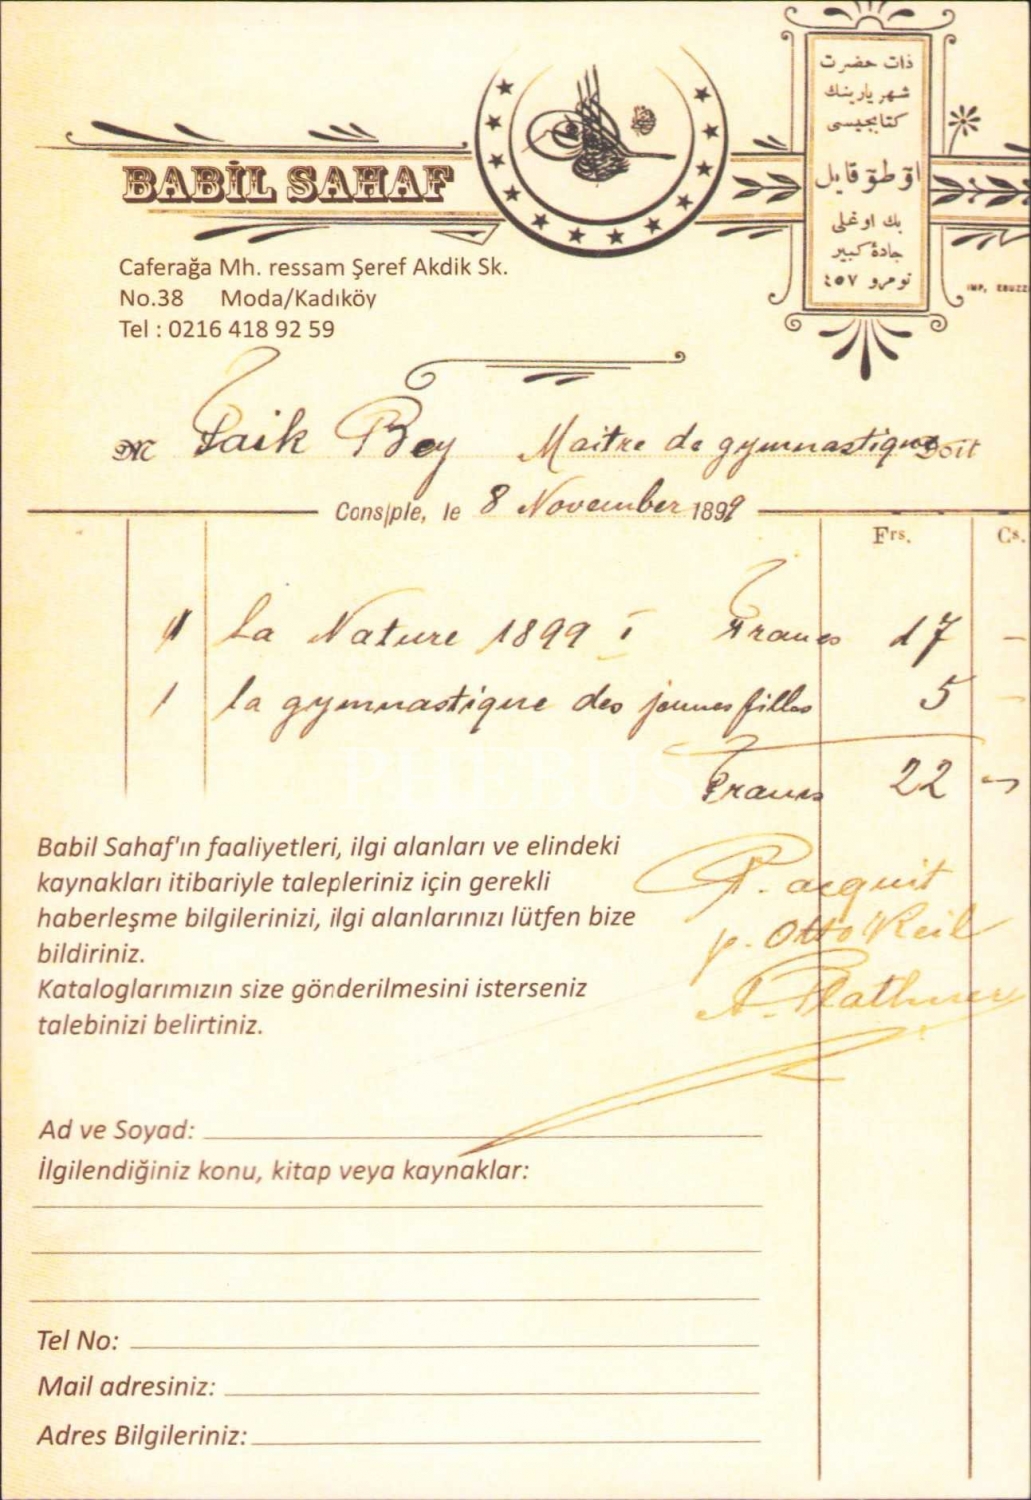 BABİL SAHAF
Caferağa Mh. ressam Şeref Akdik Sk.
No.38 Moda/Kadıköy
Tel : 0216 418 92 59
ذات حضرت
شهريارينك
كتابجيسى
اوطو قايل
بك اوغلى
جادۀ كبير
نومرو ٤٥٧
IMP. EBUZZ
M Faik Bey Maitre de gymnastique Doit
Consple, le 8 November 1899
Frs. Cs.
1 La Nature 1899 I Francs 17 –
1 la gymnastique des jeunes filles 5 –
Francs 22 –
P. acquit
p. Otto Keil
Babil Sahaf'ın faaliyetleri, ilgi alanları ve elindeki
kaynakları itibariyle talepleriniz için gerekli
haberleşme bilgilerinizi, ilgi alanlarınızı lütfen bize
bildiriniz.
Kataloglarımızın size gönderilmesini isterseniz
talebinizi belirtiniz.
Ad ve Soyad:
İlgilendiğiniz konu, kitap veya kaynaklar:
Tel No:
Mail adresiniz:
Adres Bilgileriniz: